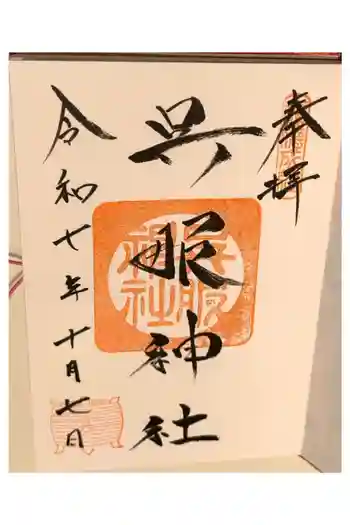 奉拝
呉服神社
令和七年十月七日
呉服神社